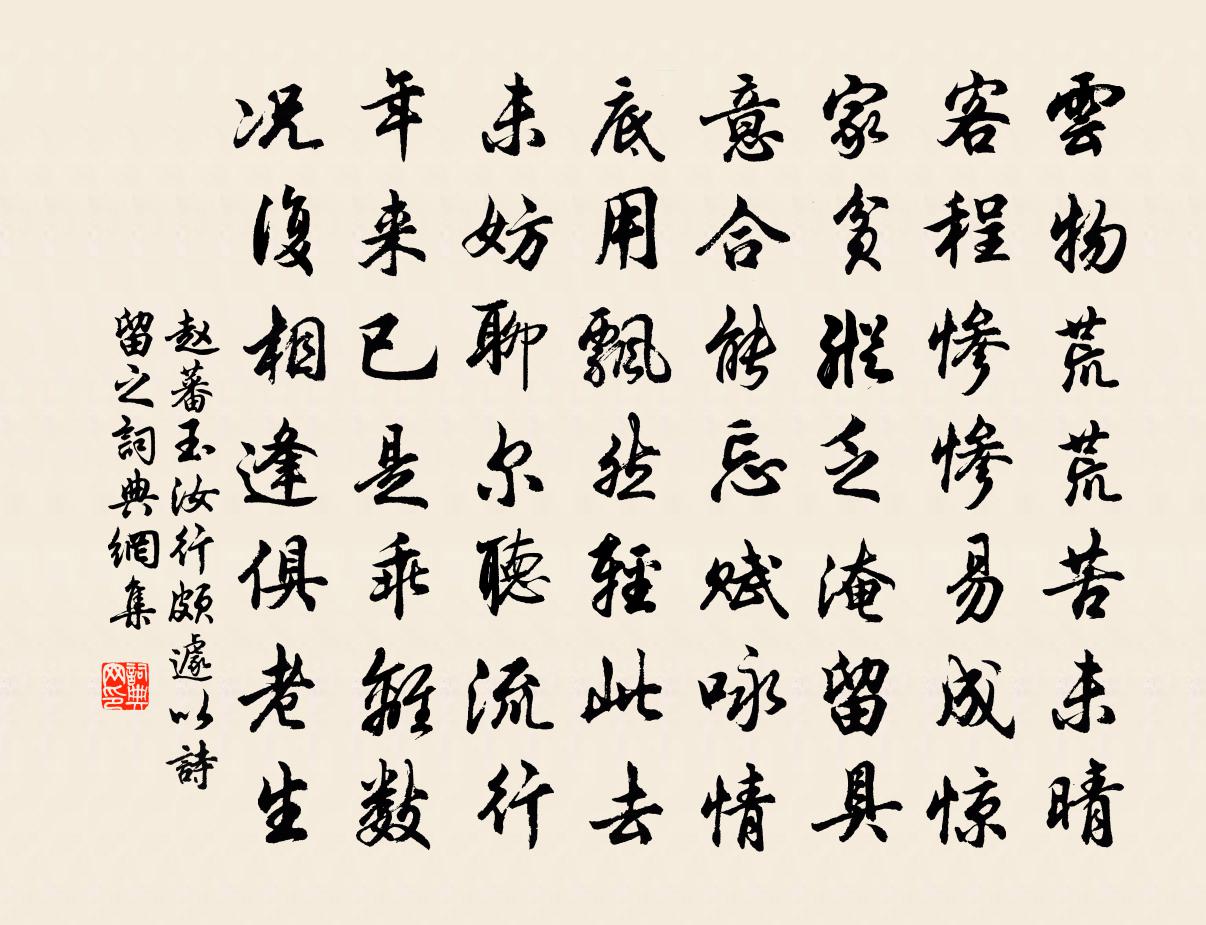 雲物荒荒苦未晴
客程惨惨易成惊
家貧縱乏淹留具
意合能忘赋咏情
底用飄然輕此去
未妨聊尔聽流行
年来已是乖離數
况復相逢俱老生
赵蕃玉汝行頗遽以詩
留之詞典網集
詞典
网印